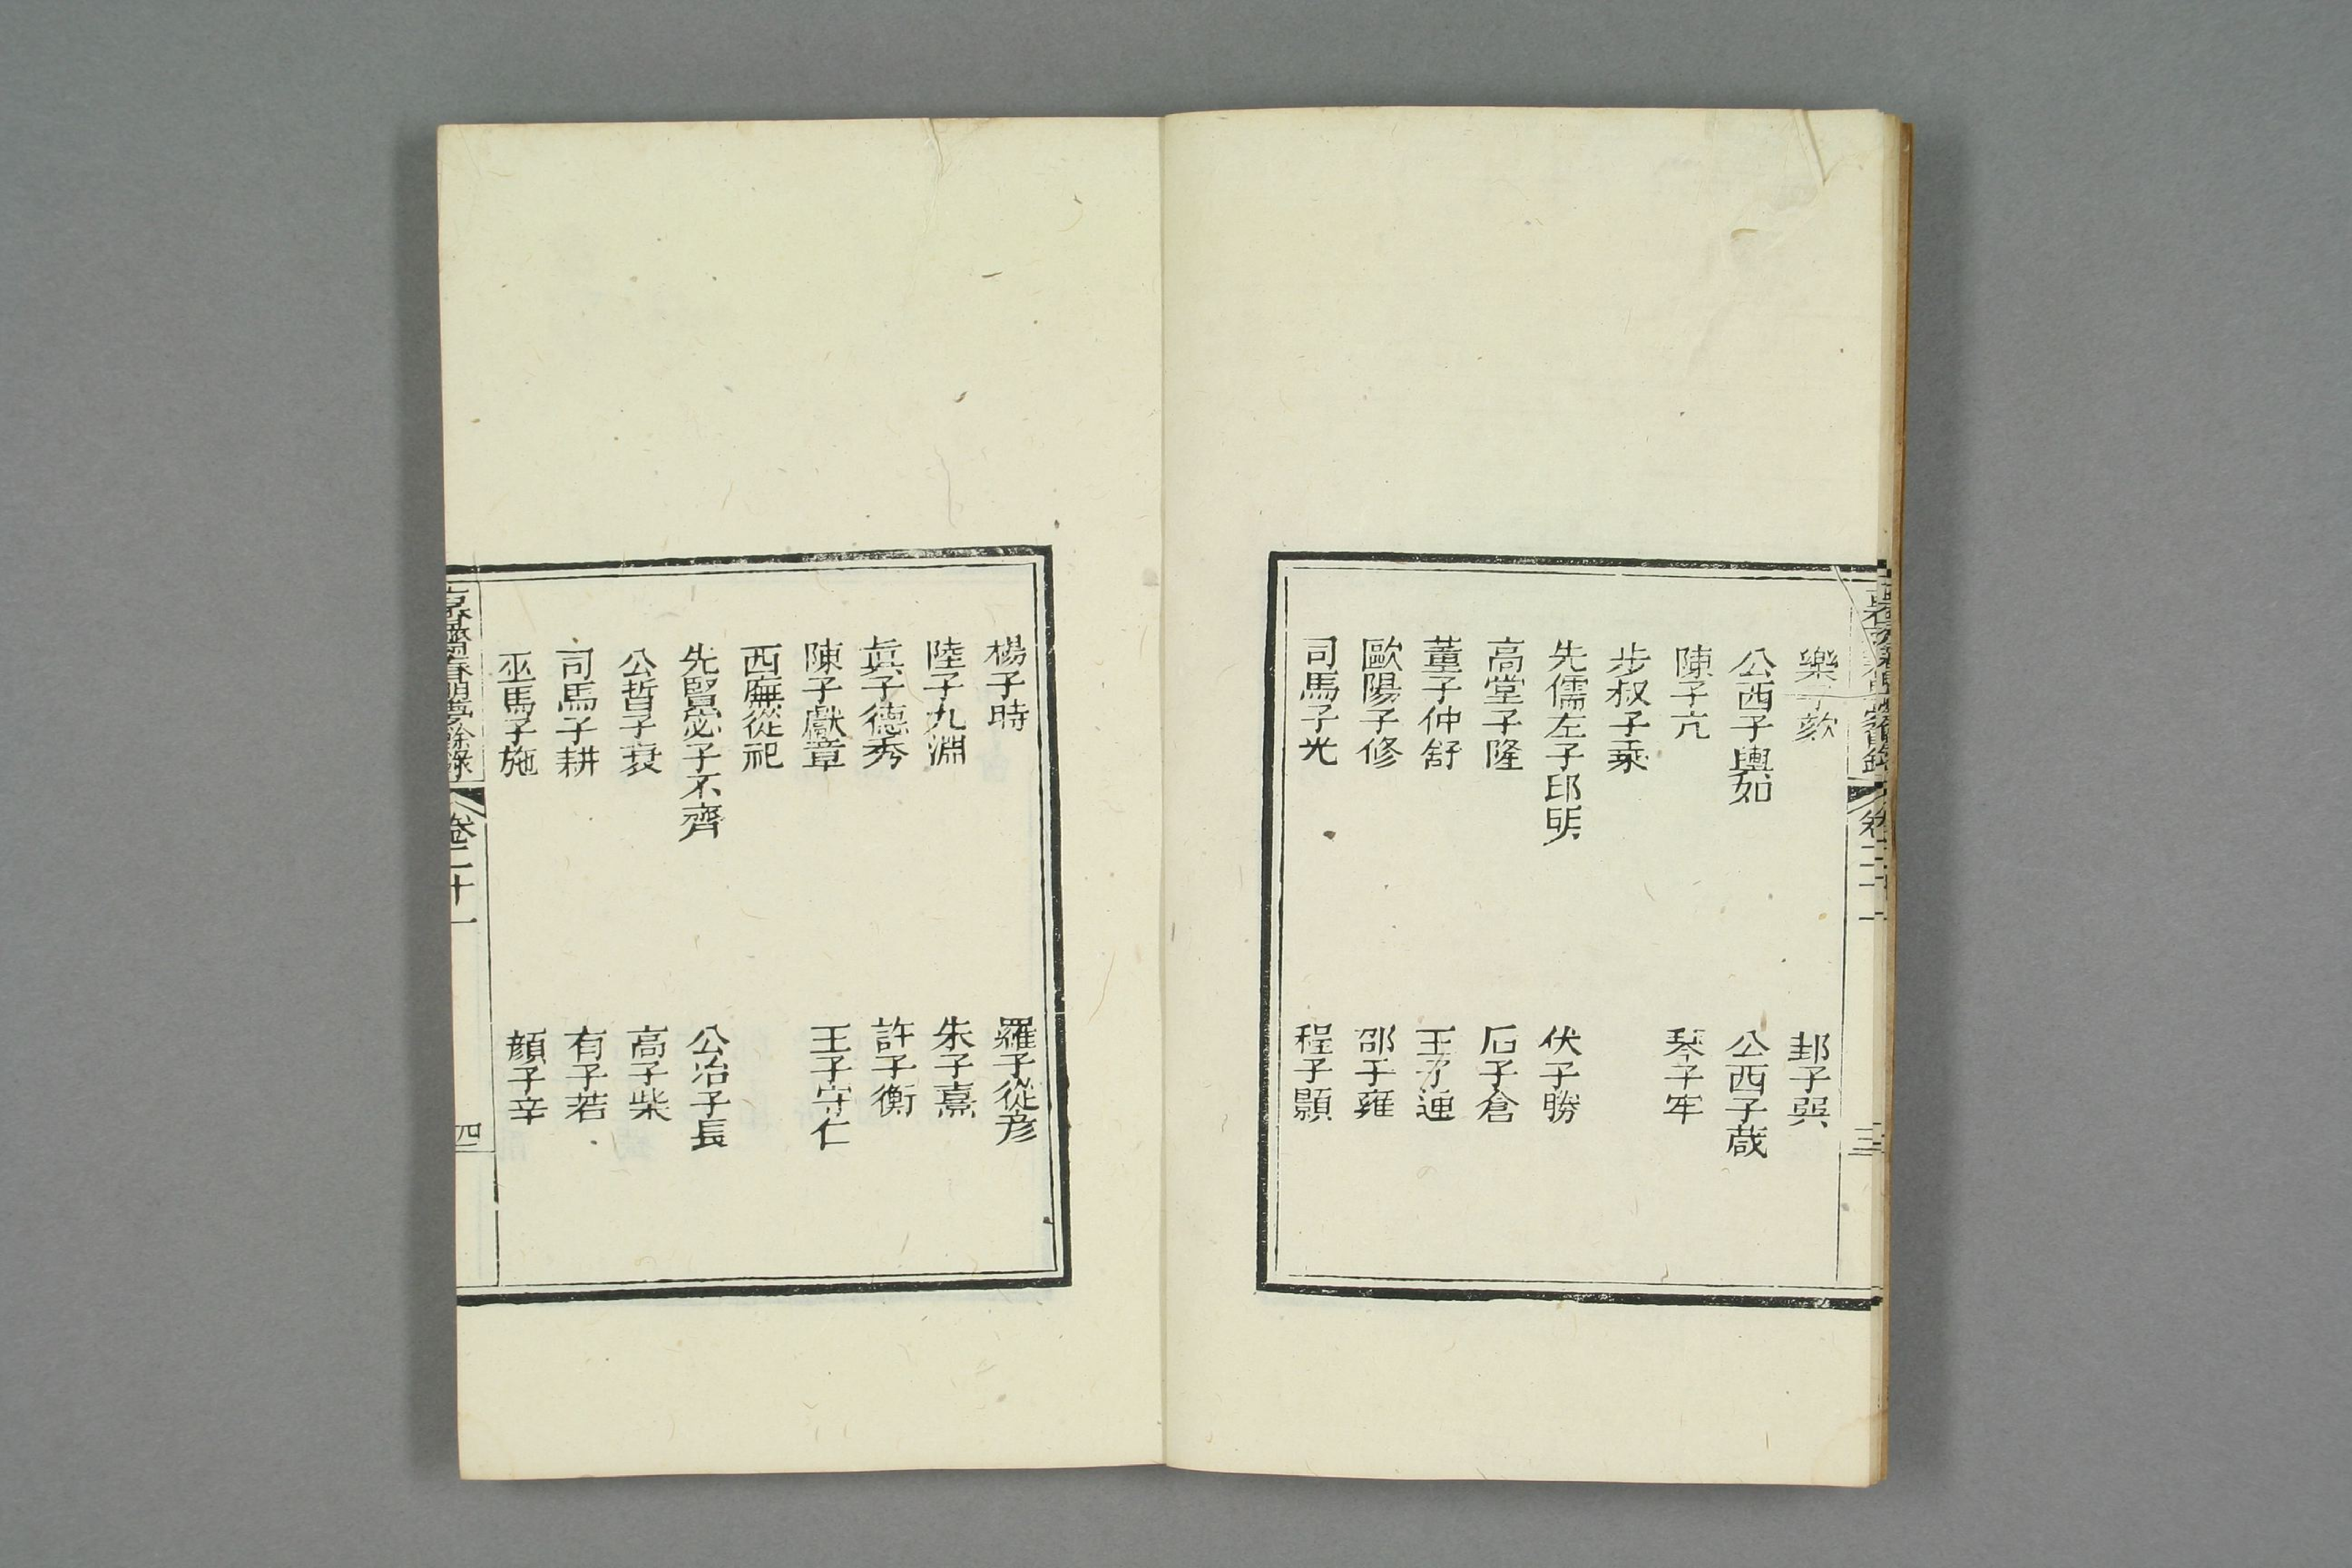 樂子欬 邽子巽
公西子輿如 公西子蒧
陳子亢 琴子牢
步叔子乘
先儒左子邱明 伏子勝
高堂子隆 后子倉
董子仲舒 王子通
歐陽子修 邵子雍
司馬子光 程子顥
楊子時 羅子從彥
陸子九淵 朱子熹
眞子德秀 許子衡
陳子獻章 王子守仁
西廡從祀
先賢宓子不齊 公冶子長
公晳子哀 高子柴
司馬子耕 有子若
巫馬子施 顏子辛
春明夢餘錄 卷二十一 四